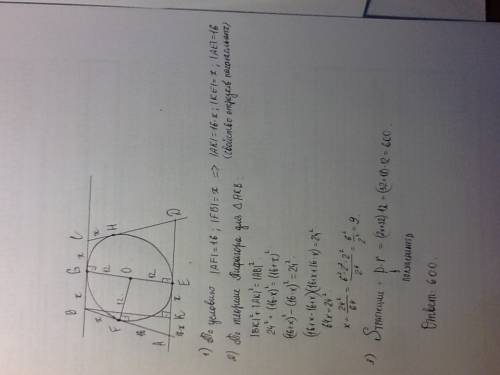 B x G x C
x x
F H
12 12
O
16 12
A 16-x K x E D
1) По условию |AF|=16; |FB|=x => |AK|=16-x; |KE|=x; |AE|=16
(свойство отрезков касательных)
2) По теореме Пифагора для △AKB:
|BK|²+|AK|²=|AB|²
24²+(16-x)²=(16+x)²
(16+x)²-(16-x)²=24²
(16+x-16+x)(16+x+16-x)=24²
64x=24²
x=24²/64=9
3) Sтрапеции = p·r = (2x+32)·12=(32+18)·12=600.
полупериметр
Ответ: 600.